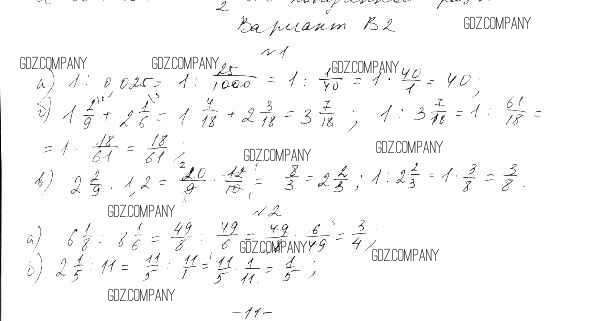 Вариант В2
GDZ.COMPANY
№1
GDZ.COMPANY GDZ.COMPANY GDZ.COMPANY
а) 1 : 0,025 = 1 : 25/1000 = 1 : 1/40 = 1 · 40/1 = 40;
б) 1 2/9 + 2 1/6 = 1 4/18 + 2 3/18 = 3 7/18 ; 1 : 3 7/18 = 1 : 61/18 =
= 1 · 18/61 = 18/61 ;
GDZ.COMPANY GDZ.COMPANY
в) 2 2/9 · 1,2 = 20/9 · 12/10 = 8/3 = 2 2/3 ; 1 : 2 2/3 = 1 · 3/8 = 3/8 .
GDZ.COMPANY №2
а) 6 1/8 : 8 1/6 = 49/8 : 49/6 = 49/8 · 6/49 = 3/4 ;
GDZ.COMPANY GDZ.COMPANY
б) 2 1/5 : 11 = 11/5 : 11/1 = 11/5 · 1/11 = 1/5 ;
GDZ.COMPANY
-11-